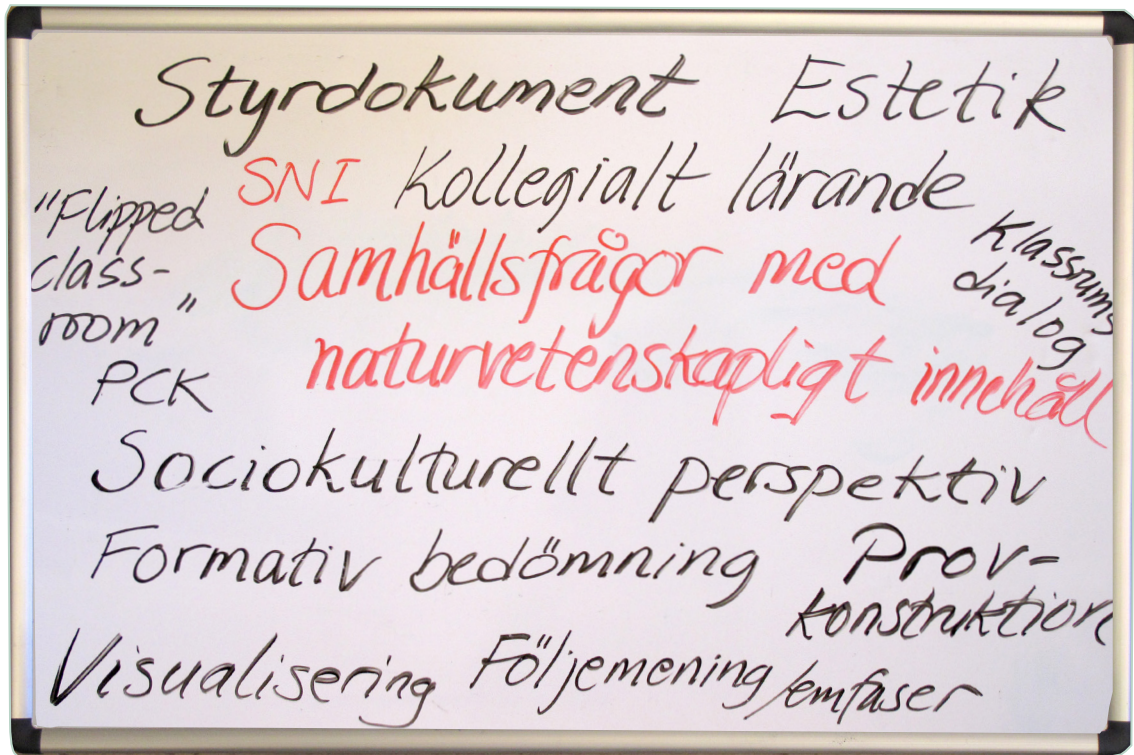 Styrdokument Estetik
SNI Kollegialt lärande
"Flipped
class-
room"
Samhällsfrågor med
naturvetenskapligt innehåll
Klassrums
dialog
PCK
Sociokulturellt perspektiv
Formativ bedömning
Prov-
konstruktion
Visualisering Följemening/emfaser